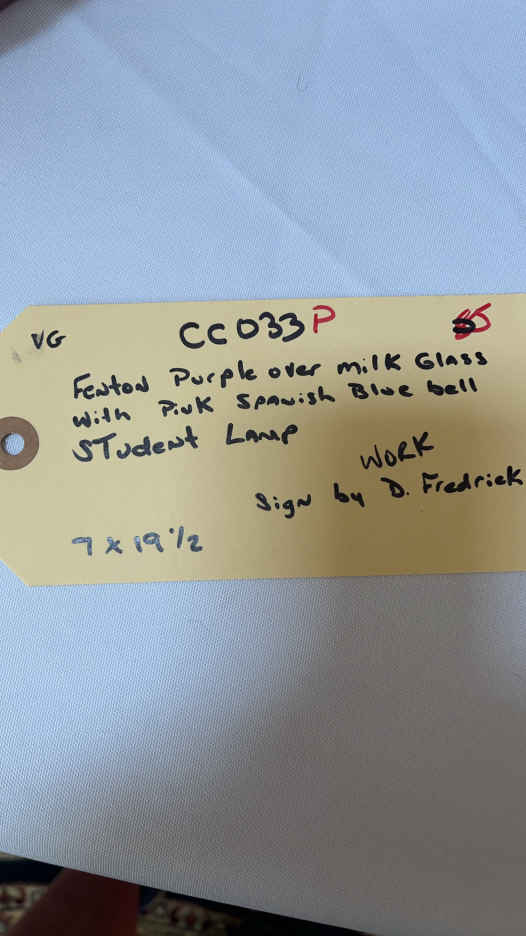 VG
CC033P
Fenton Purple over milk Glass
with Pink Spanish Blue bell
Student Lamp
Work
Sign by D. Fredrick
7 x 19 1/2